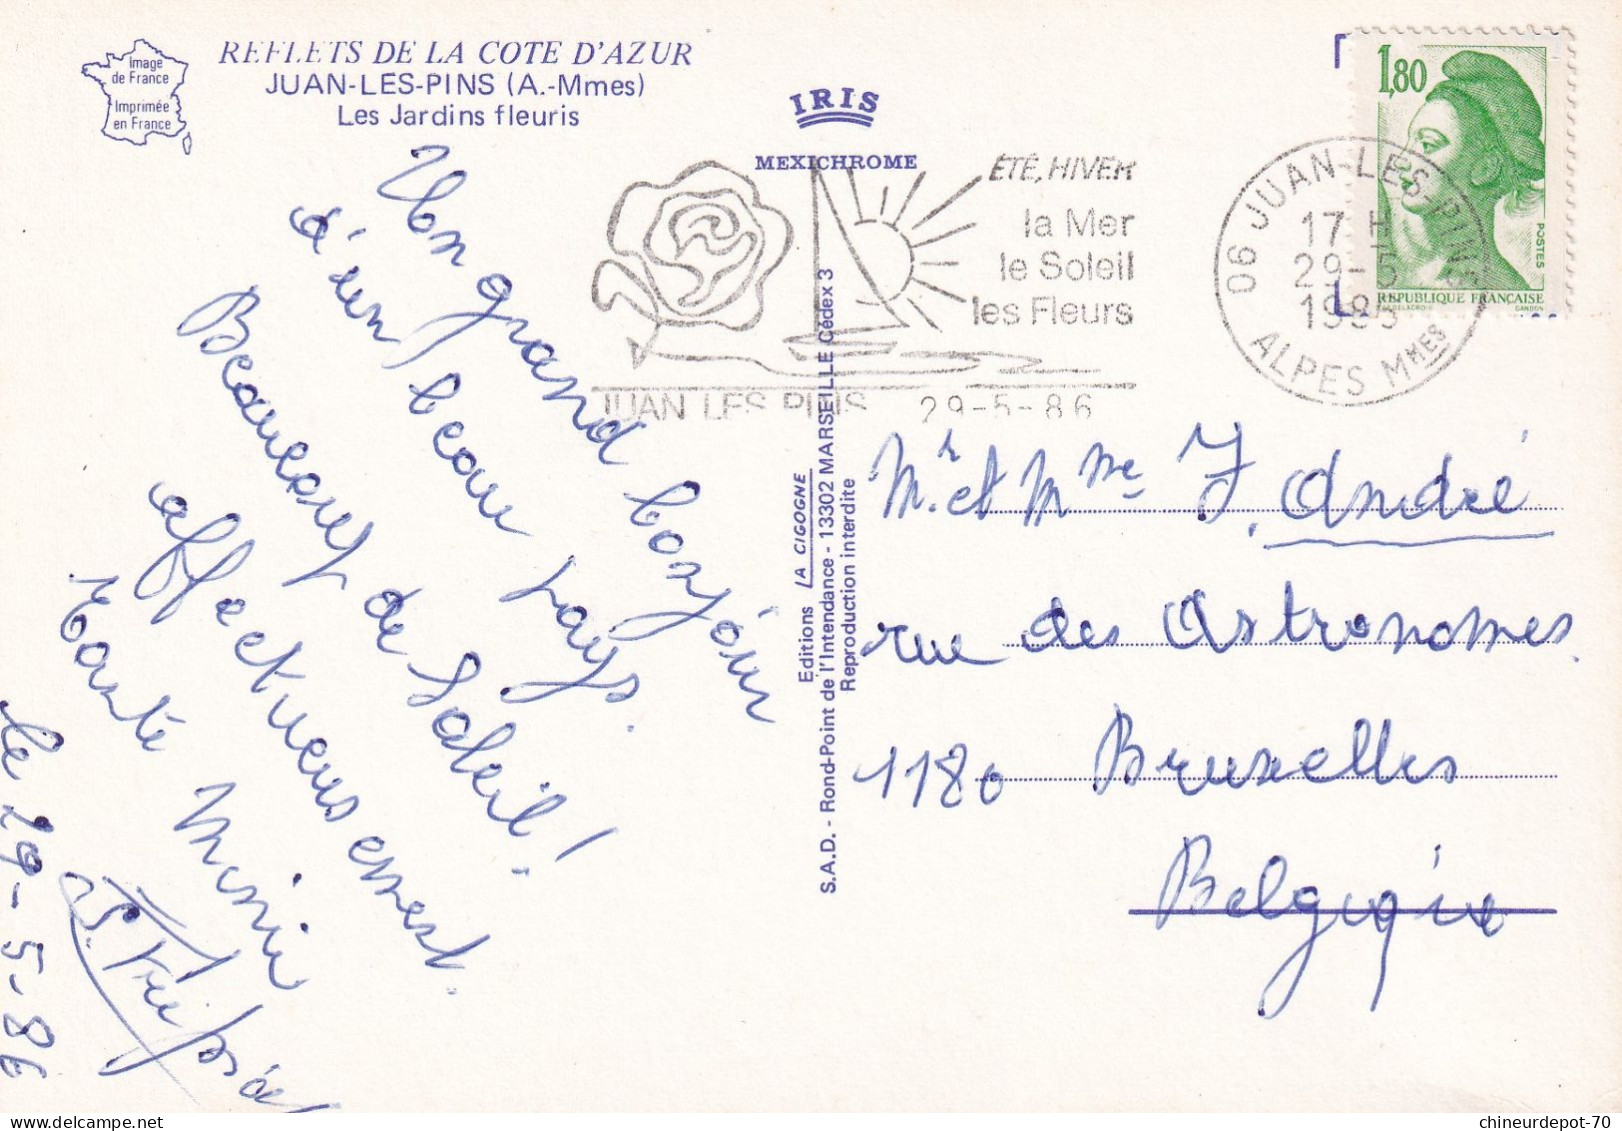 Image
de France
Imprimée
en France
REFLETS DE LA COTE D'AZUR
JUAN-LES-PINS (A.-Mmes)
Les Jardins fleuris
IRIS
MEXICHROME
ÉTÉ, HIVER
la Mer
le Soleil
les Fleurs
JUAN LES PINS 29-5-86
06 JUAN-LES-PINS
17 H
29-5
ALPES MMES
1,80
POSTES
REPUBLIQUE FRANÇAISE
GANDON
Un grand bonjour
d'un beau pays.
Beaucoup de Soleil!
affectueusement.
Tante Mimi
le 29-5-86
Editions LA CIGOGNE
S.A.D. - Rond-Point de l'Intendance - 13302 MARSEILLE Cédex 3
Reproduction interdite
Mr et Mme J. André
rue des Astronomes.
1180 Bruxelles
Belgique
chineurdepot-70